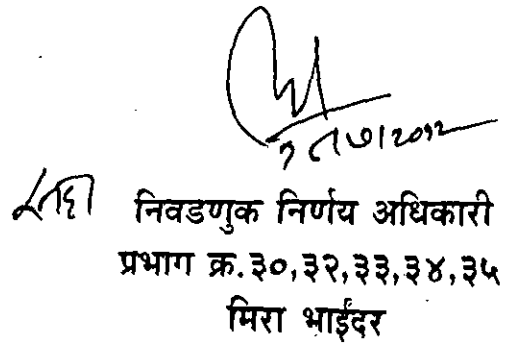 निवडणुक निर्णय अधिकारी
प्रभाग क्र.३०,३२,३३,३४,३५
मिरा भाईंदर